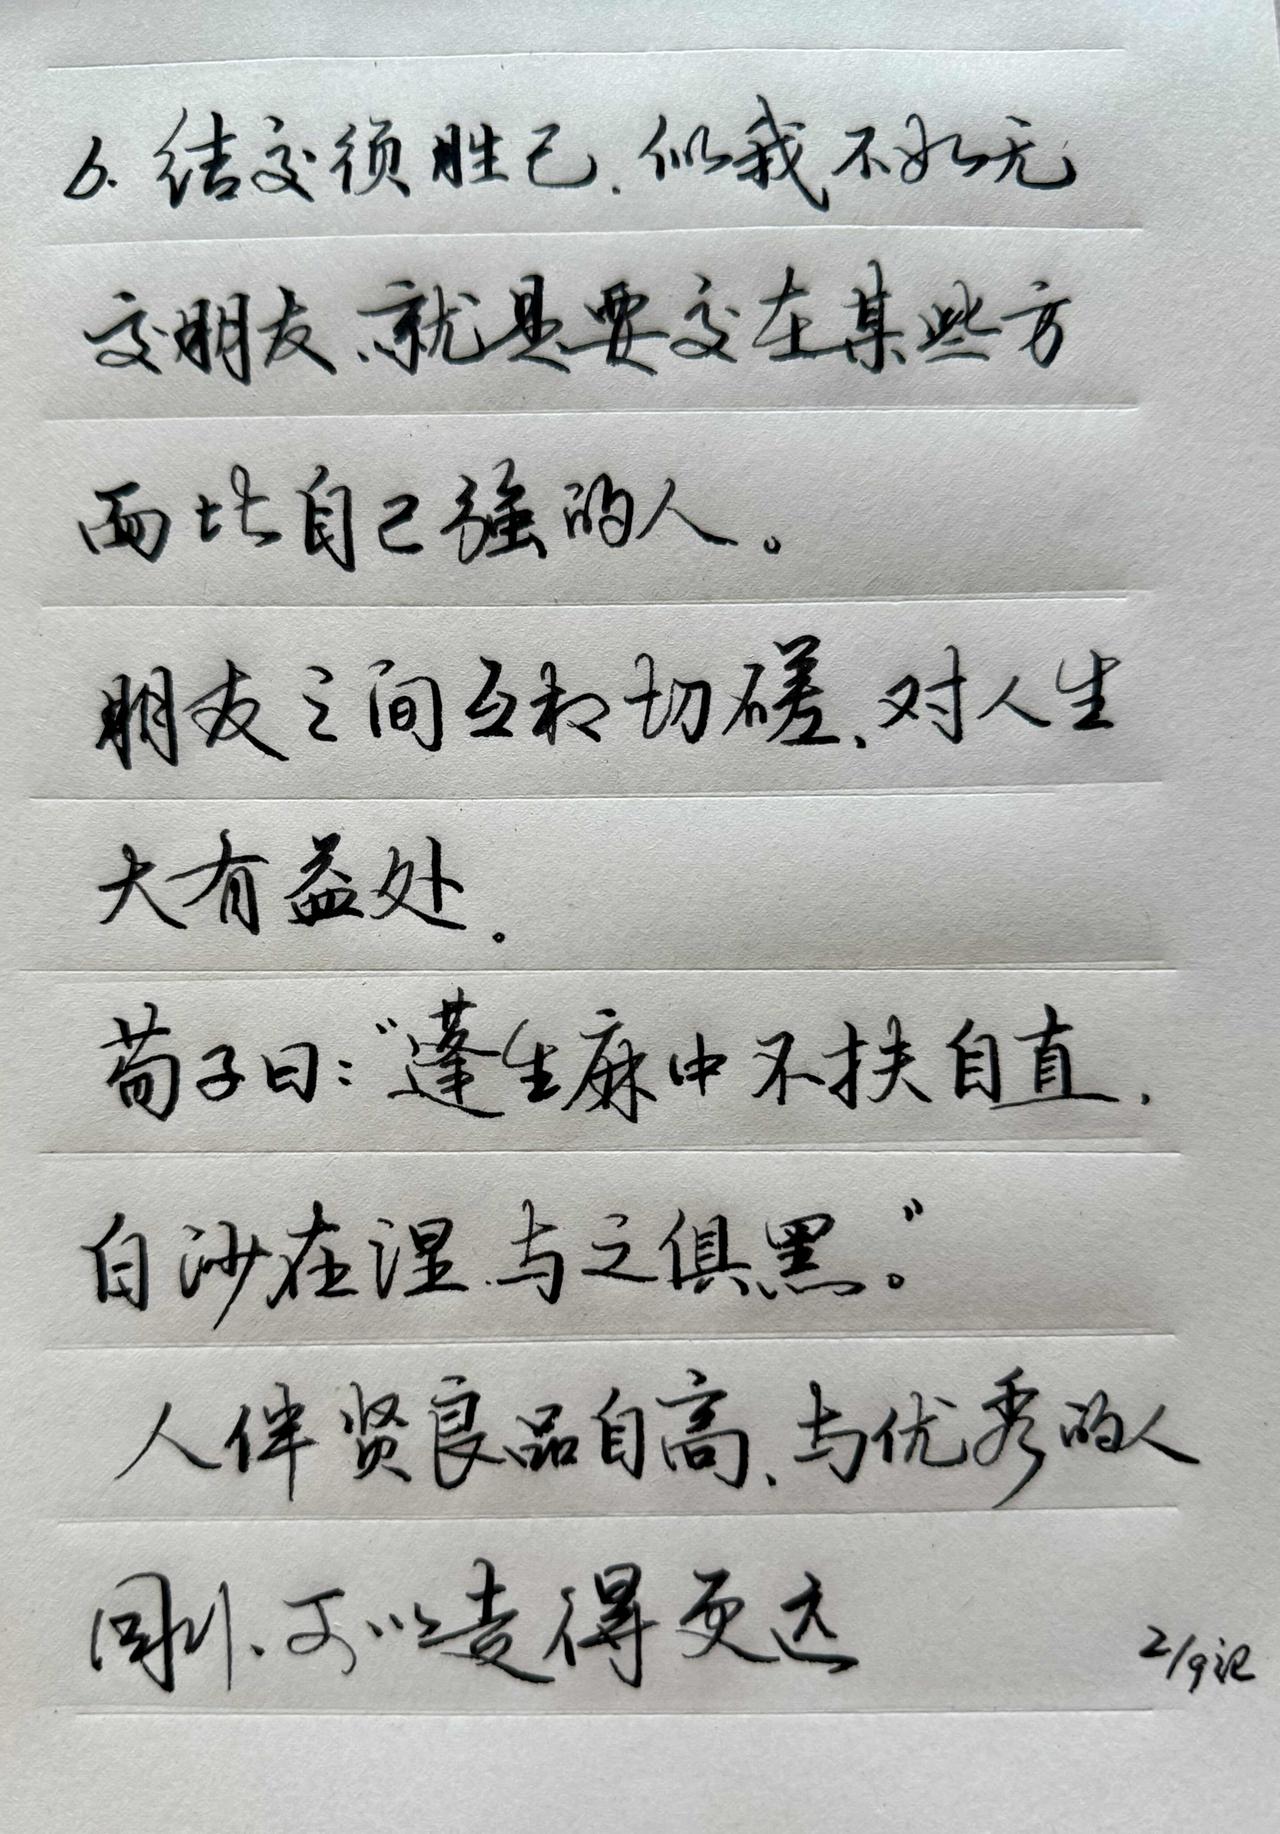 6. 结交须胜己，似我不如无
交朋友、就是要交在某些方
面比自己强的人。
朋友之间互相切磋、对人生
大有益处。
荀子曰：“蓬生麻中不扶自直，
白沙在涅、与之俱黑。”
人伴贤良品自高、与优秀的人
同列、可以走得更远
2/9记